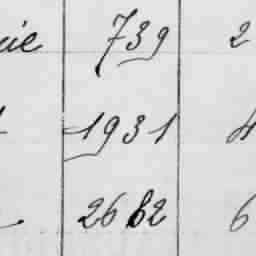 739 2
1931 4
2682 6